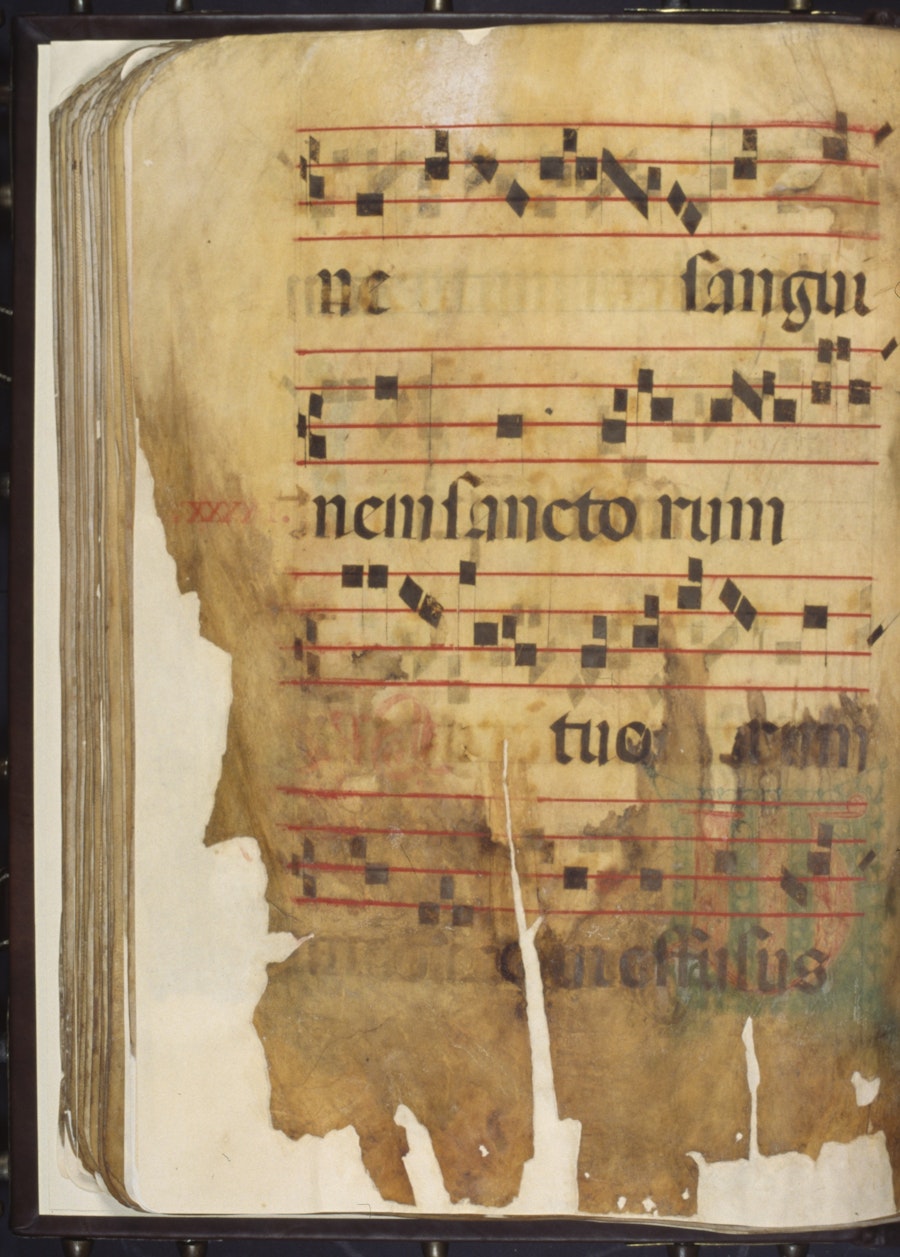 ne sangui
nem sancto rum
tuo rum
qui effusus